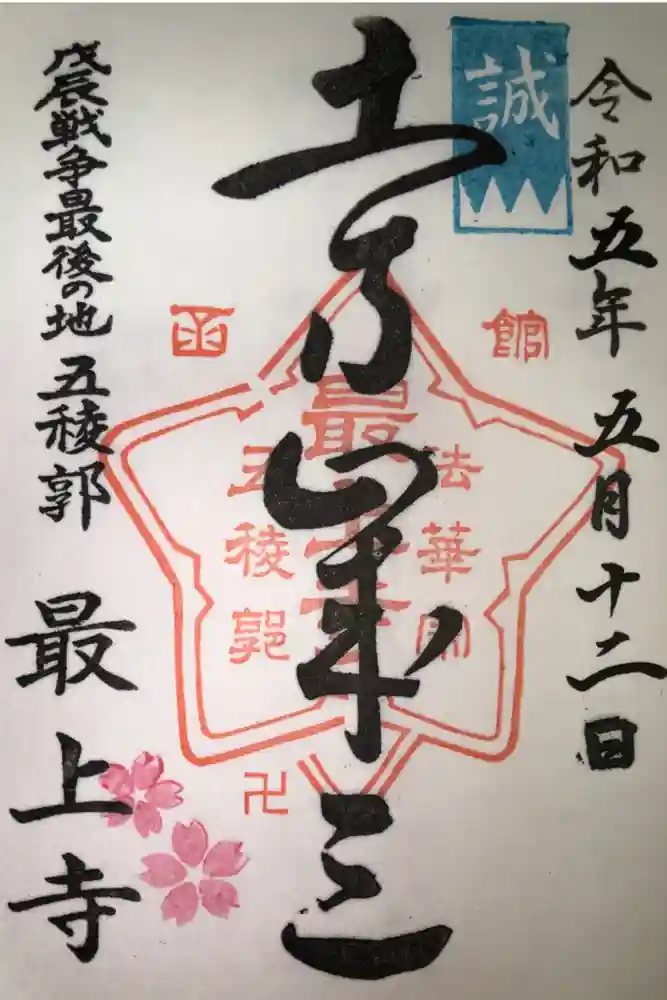 令和五年 五月十二日
誠
土方歳三
函館
最上寺
法華宗
五稜郭
卍
戊辰戦争最後の地 五稜郭
最上寺